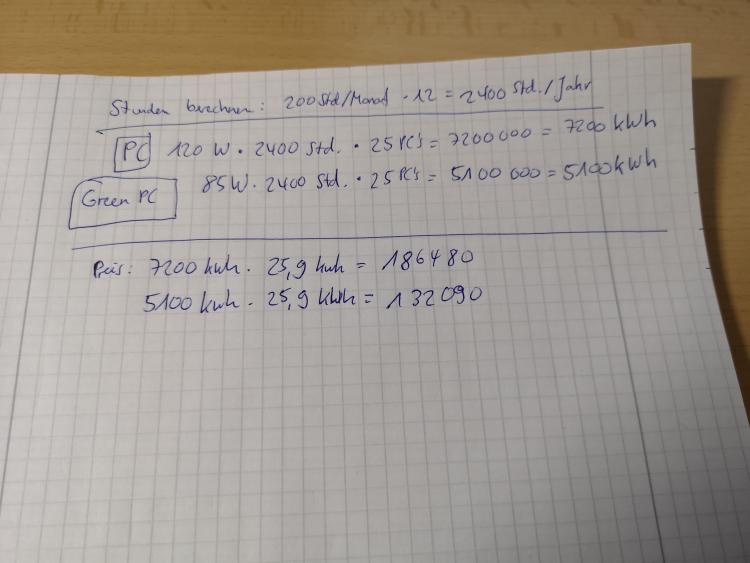 Stunden berechnen: 200 Std/Monat · 12 = 2400 Std./Jahr
PC 120 W · 2400 Std. · 25 PC's = 7200000 = 7200 kWh
Green PC 85W · 2400 Std. · 25 PC's = 5100 000 = 5100 kWh
Preis: 7200 kwh · 25,9 kwh = 186480
5100 kwh · 25,9 kWh = 132090